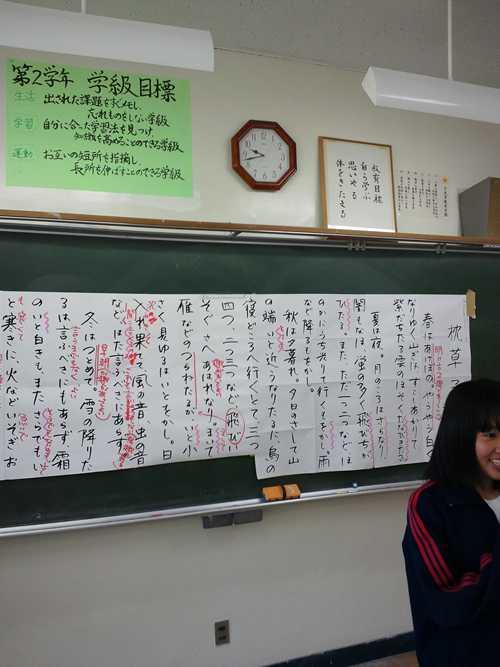 第2学年 学級目標
生活 出された課題をすぐメモし、
忘れものをしない学級
学習 自分に合った学習法を見つけ、
知識を高めることのできる学級
運動 お互いの短所を指摘し、
長所を伸ばすことのできる学級
教育目標
自ら学ぶ
思いやる
体をきたえる
枕草
春はあけぼの。やうやう白
なりゆく山ぎは、すこしあかりて
紫だちたる雲のほそくたなびきた
夏は夜。月のころはさらなり
闇もなほ、蛍の多く飛びちが
ひたる。また、ただ一つ二つなどほ
のかにうち光りて行くもをかし。雨
など降るもをかし。
秋は夕暮れ。夕日のさして山
の端いと近うなりたるに、烏の
寝どころへ行くとて、三つ
四つ、二つ三つなど、飛びい
そぐさへあはれなり。まいて
雁などのつらねたるが、いと小
さく見ゆるはいとをかし。日
入り果てて、風の音、虫の音
など、はた言ふべきにあらず。
冬はつとめて。雪の降りた
るは言ふべきにもあらず、霜
のいと白きも、またさらでもい
と寒きに、火などいそぎお